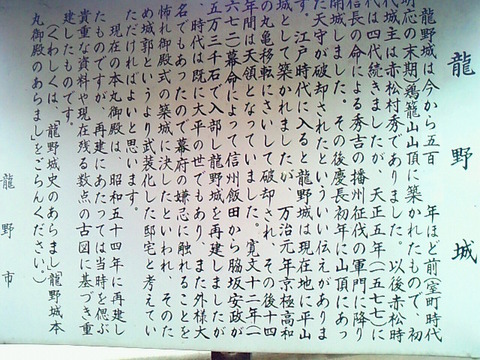 龍野城
龍野城は今から五百 年ほど前室町時代
明応の末期鶏籠山山頂に築かれたもので、初
代城主は赤松村秀でありました。以後赤松時
代は四代続きましたが、天正五年(一五七七)に
信長の命による秀吉の播州征伐の軍門に降り
開城しました。その後慶長初年に山頂にあっ
た天守が破却されたという言い伝えがありま
す。江戸時代に入ると龍野城は現在地に平山
城として築かれましたが、万治元年京極高和
の丸亀移転にさいして破却され、その後十四
年間は天領となっていました。寛文十二年(一
六七二)幕命によって信州飯田から脇坂安政が
五万三千石で入部し龍野城を再建しましたが
、時代は既に太平の世でもあり、また外様大
名でもあったので幕府の嫌忌に触れることを
怖れ御殿式の築城に決したといわれ そのた
め城郭というより武装化した邸宅と考えてい
ただければよいと思います。
現在の本丸御殿は、昭和五十四年に再建し
たものですが、再建にあたっては当時を偲ぶ
貴重な資料や現在残る数点の古図に基づき重
建したものです。
(くわしくは、「龍野城史のあらまし」「龍野城本
丸御殿のあらまし」をごらんください。)
龍野市